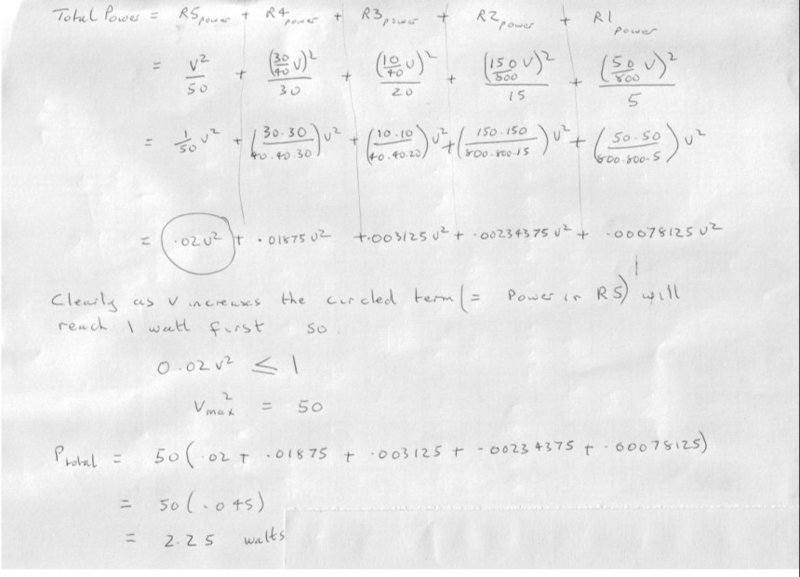 Total Power = R5power + R4power + R3power + R2power + R1power
= V²/50 + (30/40 V)²/30 + (10/40 V)²/20 + (150/800 V)²/15 + (50/800 V)²/5
= 1/50 V² + (30·30/40·40·30) V² + (10·10/40·40·20) V² + (150·150/800·800·15) V² + (50·50/800·800·5) V²
= ·02V² + ·01875V² + ·003125V² + ·00234375V² + ·00078125V²
Clearly as V increases the circled term (= Power in R5) will
reach 1 watt first so
0·02V² ≤ 1
Vmax² = 50
Ptotal = 50(·02 + ·01875 + ·003125 + ·00234375 + ·00078125)
= 50(·045)
= 2·25 watts